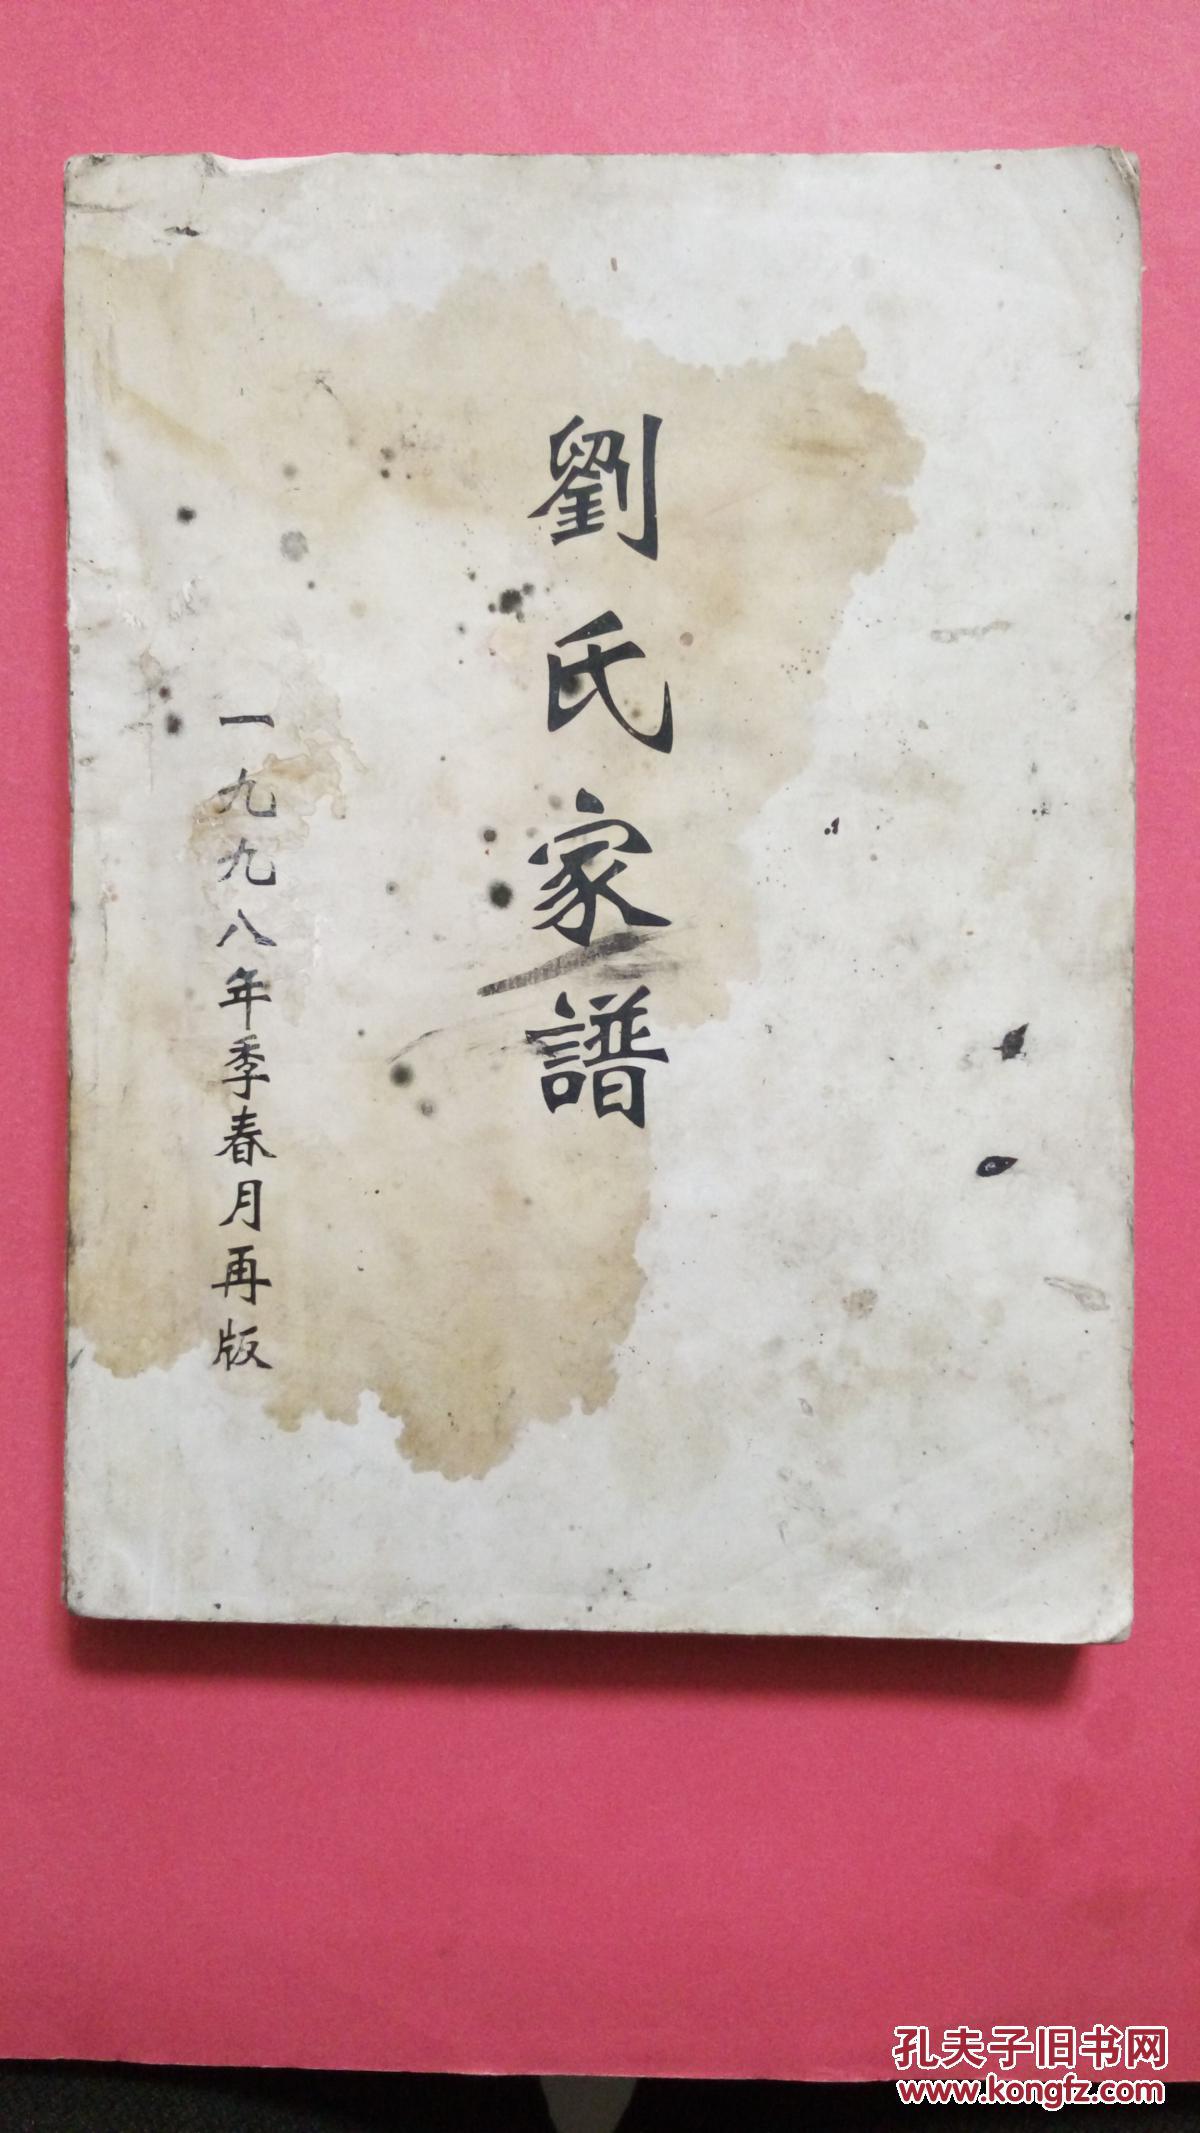 劉氏家譜
一九九八年季春月再版
孔夫子旧书网
www.kongfz.com